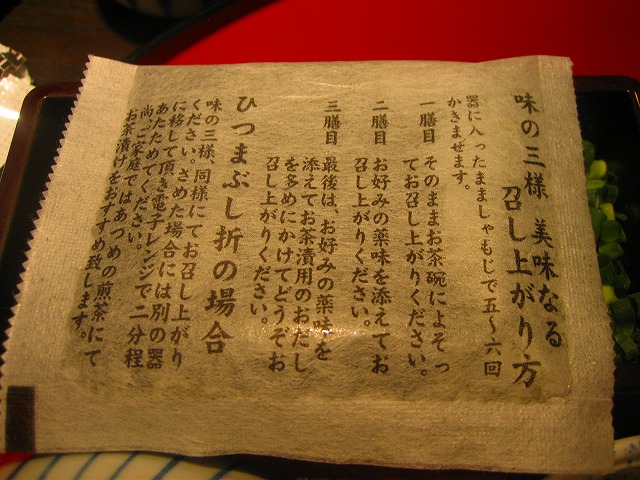 味の三様 美味なる
召し上がり方
器に入ったまましゃもじで五〜六回
かきまぜます。
一膳目 そのままお茶碗によそっ
てお召し上がりください。
二膳目 お好みの薬味を添えてお
召し上がりください。
三膳目 最後は、お好みの薬味を
添えてお茶漬用のおだし
を多めにかけてどうぞお
召し上がりください。
ひつまぶし折の場合
味の三様、同様にてお召し上がり
ください。さめた場合には別の器
に移して頂き電子レンジで二分程
あたためてください。
尚、ご家庭ではあつめの煎茶にて
お茶漬けをおすすめ致します。